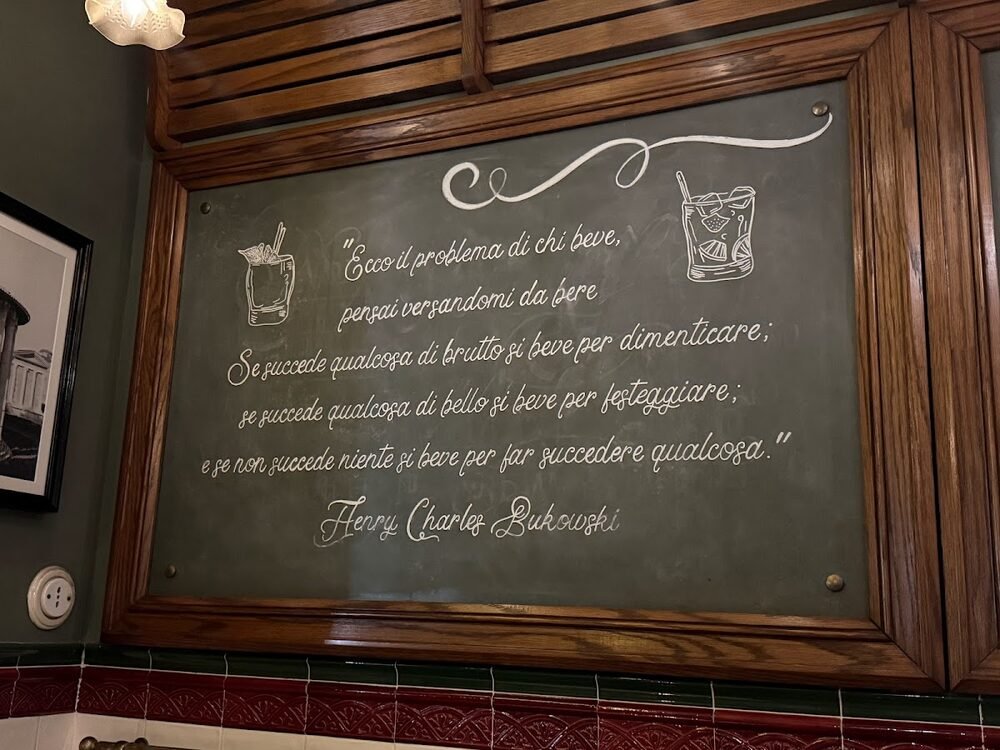 "Ecco il problema di chi beve,
pensai versandomi da bere
Se succede qualcosa di brutto si beve per dimenticare;
se succede qualcosa di bello si beve per festeggiare;
e se non succede niente si beve per far succedere qualcosa."
Henry Charles Bukowski